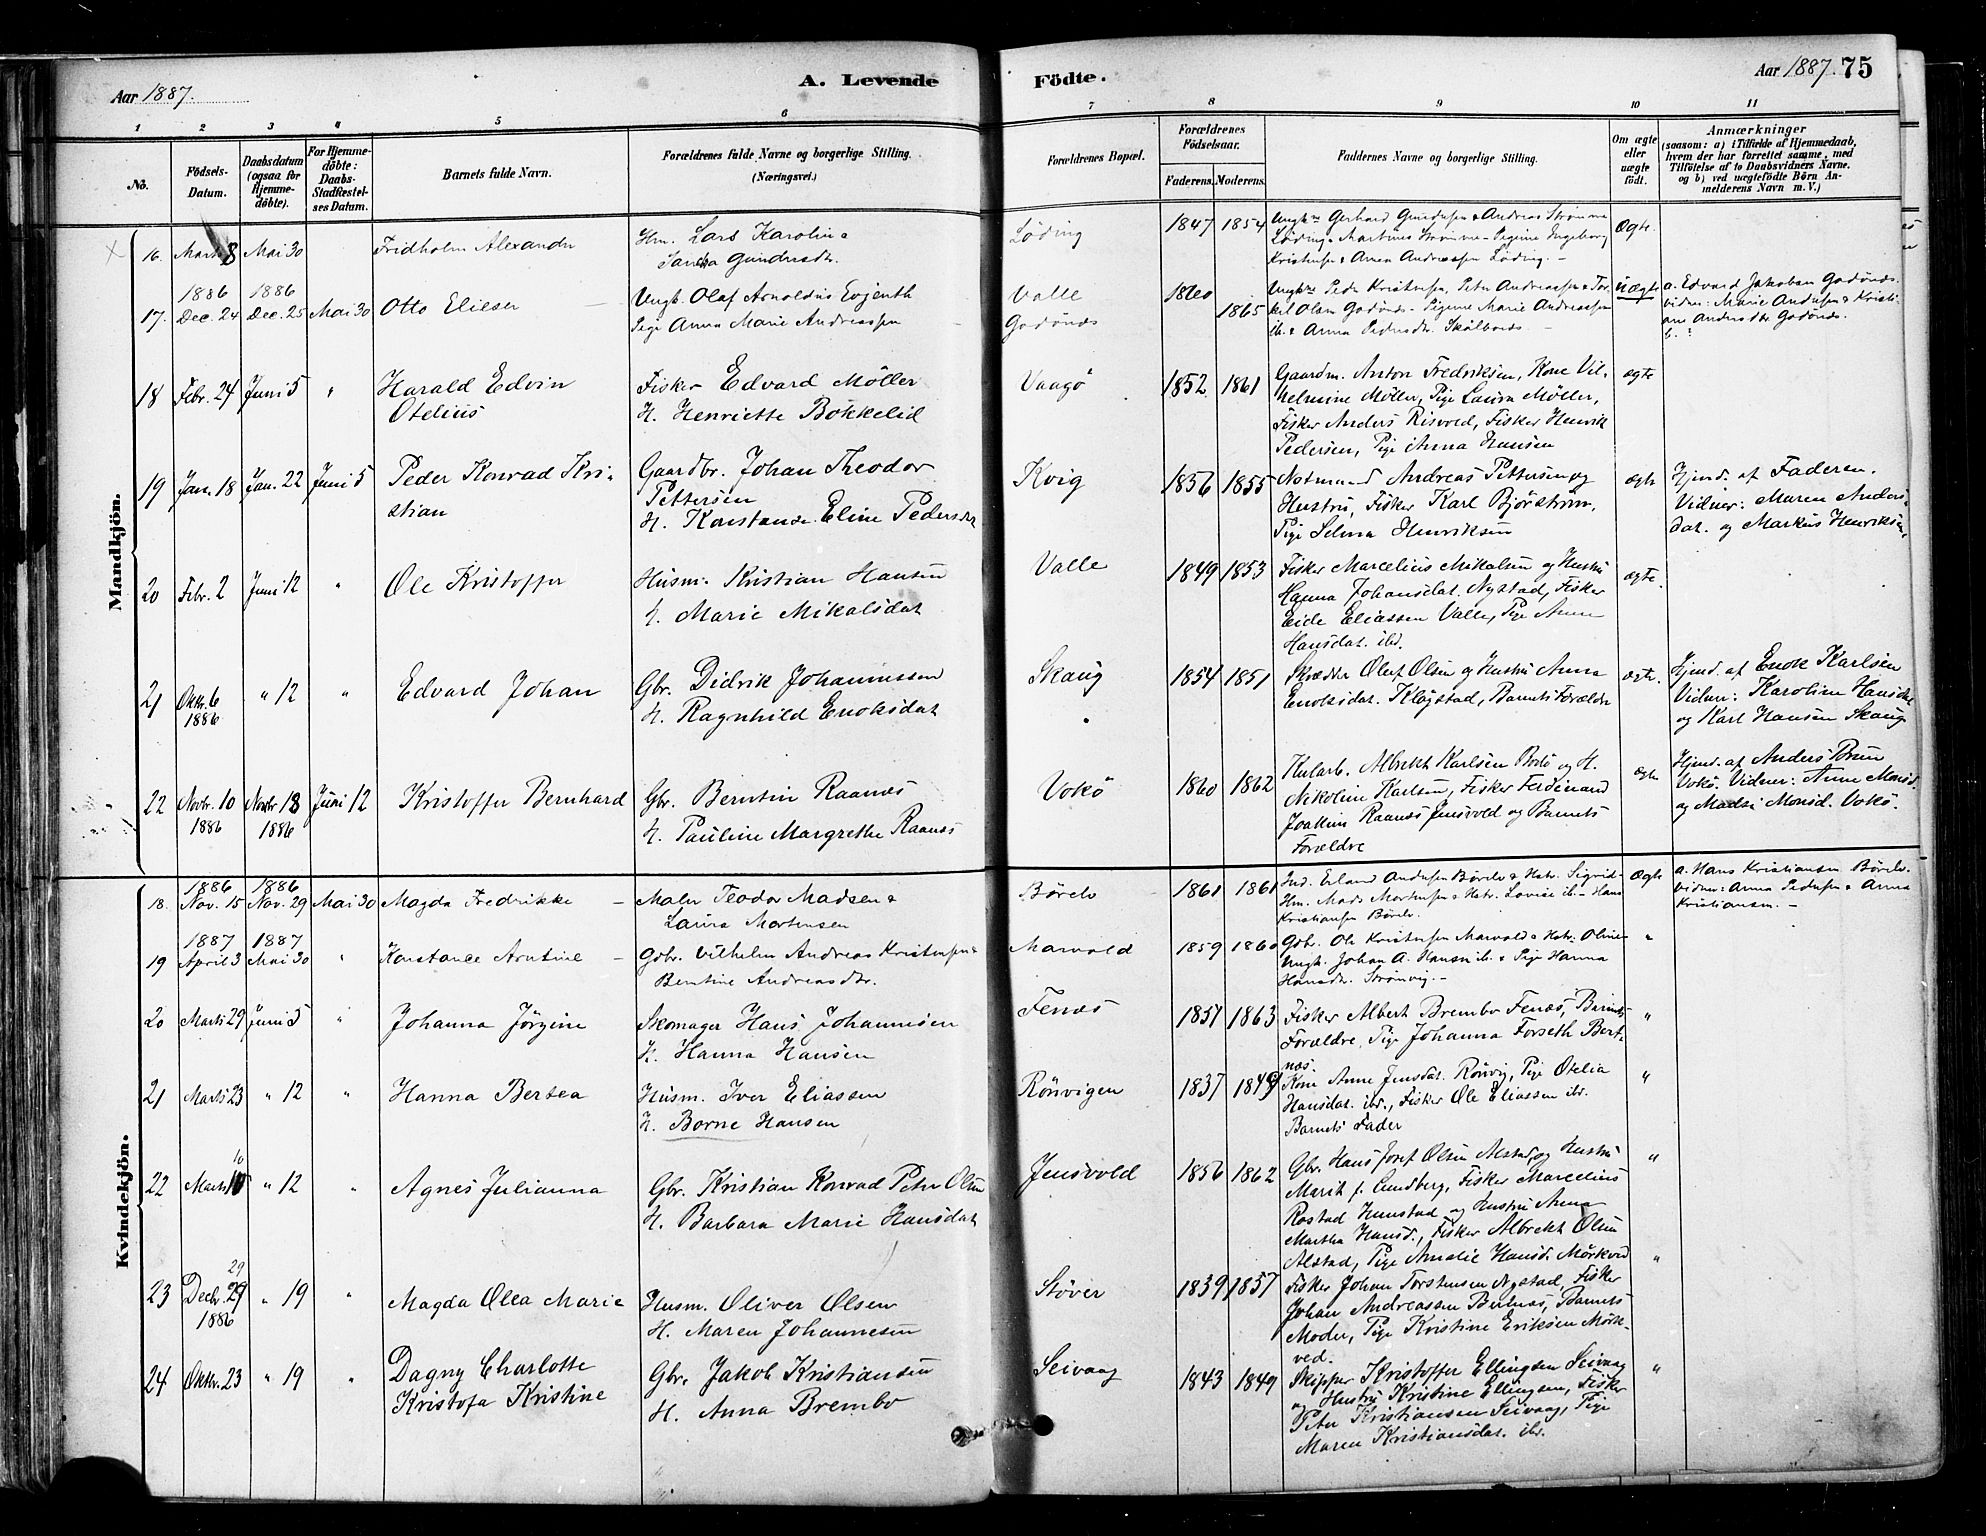 Aar 1887.
A. Levende
Födte.
Aar 1887. 75
1 2 3 4 5 6 7 8 9 10 11
No.
Födsels-Datum.
Daabsdatum (ogsaa for Hjemme-döbte).
For Hjemme-döbte: Daabs-Stadfæstel-ses Datum.
Barnets fulde Navn.
Forældrenes fulde Navne og borgerlige Stilling.
(Næringsvei.)
Forældrenes Bopæl.
Forældrenes Födselsaar.
Faderens. Moderens.
Faddernes Navne og borgerlige Stilling.
Om ægte eller uægte födt.
Anmærkninger
(saasom: a) i Tilfælde af Hjemmedaab, hvem der har forrettet samme, med Tilföielse af to Daabsvidners Navne, og b) ved uægtefödte Börn An-melderens Navn m. V.)
Mandkjön.
16. Marts 8 Mai 30 Fridholm Alexander Hm. Lars Karolius Löding 1847 1854 Ægte.
17. 1886 Dec. 24 1886 Dec. 25 Mai 30 Otto Elieser
Ungk. Olaf Arnoldus Evjenth
Pige Anna Marie Andreassen
Valle
Godönes
1860
1865
uægte
a. Edvard Jakobsen Godönes.
18 Febr. 24 Juni 5 " Harald Edvin
Otelius
Fisker Edvard Möller
H. Henriette Bokkelid
Vaagö 1852 1861
Gaardm. Anton Fredriksen, Kone Vil-
helmine Möller, Pige Laura Möller,
Fisker Anders Risvold, Fisker Henrik
Pedersen, Pige Anna Hansen
ægte
19 Jan. 18 Jan. 22 Juni 5 Peder Konrad Kri-
stian
Gaardbr. Johan Theodor
Pettersen
H. Konstanse Eline Pedersdt
Kvig 1856 1855
Notmand Andreas Pettersen og
Hustru, Fisker Karl Björström,
Pige Selma Henriksen
ægte
Hjemd. af Faderen.
Vidner: Maren Anders-
dat. og Markus Henriksen
20 Febr. 2 Juni 12 " Ole Kristoffer
Husm. Kristian Hansen
H. Marie Mikalsdat
Valle 1849 1853
Fisker Marcelius Mikalsen og Hustru
Hanna Johansdat. Nystad, Fisker
Eide Eliassen Valle, Pige Anne
Hansdat. ibd.
ægte.
21 Oktr. 6 1886 " 12 " Edvard Johan
Gbr. Didrik Johannessen
H. Ragnhild Enoksdat
Skaug 1854 1851
Skrædder Oluf Olsen og Hustru Anna
Enoksdat. Klögstad, Barnets Forældre
ægte.
Hjemd. af Enok Karlsen
Vidner: Karoline Hansdat
og Karl Hansen Skaug
22 Novbr. 10 1886 Novbr 18 1886 Juni 12 Kristoffer Bernhard
Gbr. Berntin Raanes
H. Pauline Margrethe Raanes
Vokö 1860 1862
Albrekt Karlsen Bodö og H.
Nikoline Karlsen, Fisker Ferdinand
Joakim Raanes Jensvold og Barnets
Forældre
ægte
Hjemd. af Anders Brun
Vokö. Vidner: Anne Monsd.
og Madsi Monsd. Vokö.
Kvindekjön.
18. 1886 Nov. 15 1886 Nov. 29 Mai 30 Magda Fredrikke
Maler Teodor Madsen &
Laura Mortensen
1861 1861
Ægte
a. Hans Kristiansen
19 1887 April 3 1887 Mai 30 " Konstance Arntine
Gdbr. Vilhelm Andreas Kristensen &
Berntine Andreasdtr.
Marvold 1859 1860 "
20 Marts 29 Juni 5 " Johanna Jörgine
Skomager Hans Johannesen
H. Hanna Hansen
Fenæs 1851 1863
Fisker Albert Brembo Fenæs, Barnets
Forældre, Pige Johanna Forseth Bert-
næs.
"
21 Marts 23 " 12 " Hanna Bertea
Husm. Iver Eliassen
H. Borne Hansen
Rönvigen 1837 1849
Kone Anne Jensdat. Rönvig, Pige Otelia
Hansdat. ibd., Fisker Ole Eliassen ibd.
Barnets Fader
"
22 Marts 10 " 12 " Agnes Julianna
Gbr. Kristian Konrad Peter Olsen
H. Barbara Marie Hansdat
Jensvold 1856 1862
Gbr. Hans Josef Olsen Alstad og Hustru
Marit f. Lundberg, Fisker Marcelius
Rostad Hunstad og Hustru Anna
Martha Hansd., Fisker Albrekt Olsen
Alstad, Pige Amalie Hansd. Mörkved
"
23 Decbr. 29 1886 " 19 " Magda Olea Marie
Husm. Oliver Olsen
H. Maren Johannesen
Støver 1839 1857
Fisker Johan Torstensen Nystad, Fisker
Johan Andreassen Bertnæs, Barnets
Moder, Pige Kristine Eriksen Mörk-
ved.
"
24 Oktr. 23 " 19 " Dagny Charlotte
Kristofa Kristine
Gbr. Jakob Kristiansen
H. Anna Brembo
Seivaag 1843 1849
Skipper Kristoffer Ellingsen Seivaag
og Hustru Kristine Ellingsen, Fisker
Peter Kristiansen Seivaag, Pige
Maren Kristiansdat. ibd.
"